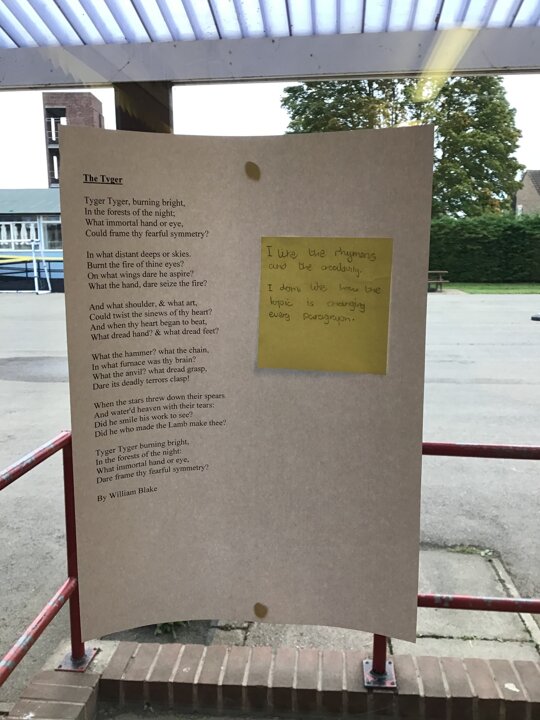 The Tyger
Tyger Tyger, burning bright,
In the forests of the night;
What immortal hand or eye,
Could frame thy fearful symmetry?
In what distant deeps or skies.
Burnt the fire of thine eyes?
On what wings dare he aspire?
What the hand, dare seize the fire?
And what shoulder, & what art,
Could twist the sinews of thy heart?
And when thy heart began to beat,
What dread hand? & what dread feet?
What the hammer? what the chain,
In what furnace was thy brain?
What the anvil? what dread grasp,
Dare its deadly terrors clasp!
When the stars threw down their spears
And water'd heaven with their tears:
Did he smile his work to see?
Did he who made the Lamb make thee?
Tyger Tyger burning bright,
In the forests of the night:
What immortal hand or eye,
Dare frame thy fearful symmetry?
By William Blake
I like the rhyming
and the
I dont like how the
topic is changing
every paragraph.